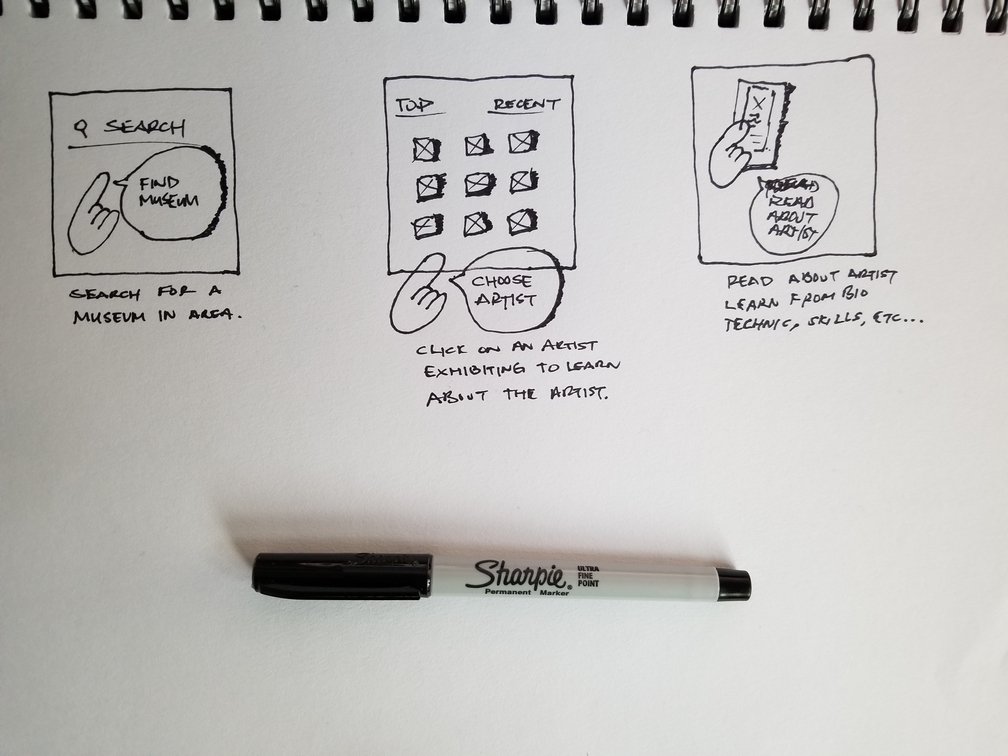 SEARCH
FIND
MUSEUM
SEARCH FOR A
MUSEUM IN AREA.
TOP RECENT
CHOOSE
ARTIST
CLICK ON AN ARTIST
EXHIBITING TO LEARN
ABOUT THE ARTIST.
READ
ABOUT
ARTIST
READ ABOUT ARTIST
LEARN FROM BIO
TECHNIC, SKILLS, ETC...
Sharpie.
Permanent Marker
ULTRA
FINE
POINT